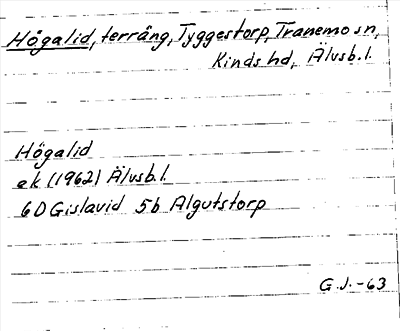 Högalid, terräng, Tyggestorp, Tranemo sn,
Kinds hd, Älvsb.l.
Högalid
ek (1962) Älvsb.l.
6D Gislavid 5b Algutstorp
G.J.-63